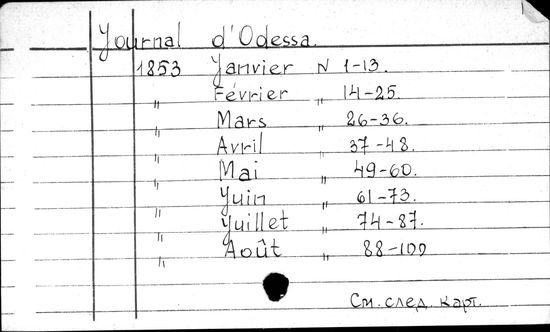 Journal d'Odessa.
1853 Janvier N 1-13.
" Février " 14-25.
" Mars " 26-36.
" Avril " 37-48.
" Mai " 49-60.
" Juin " 61-73.
" Juillet " 74-87.
" Août " 88-100
См. след. карт.